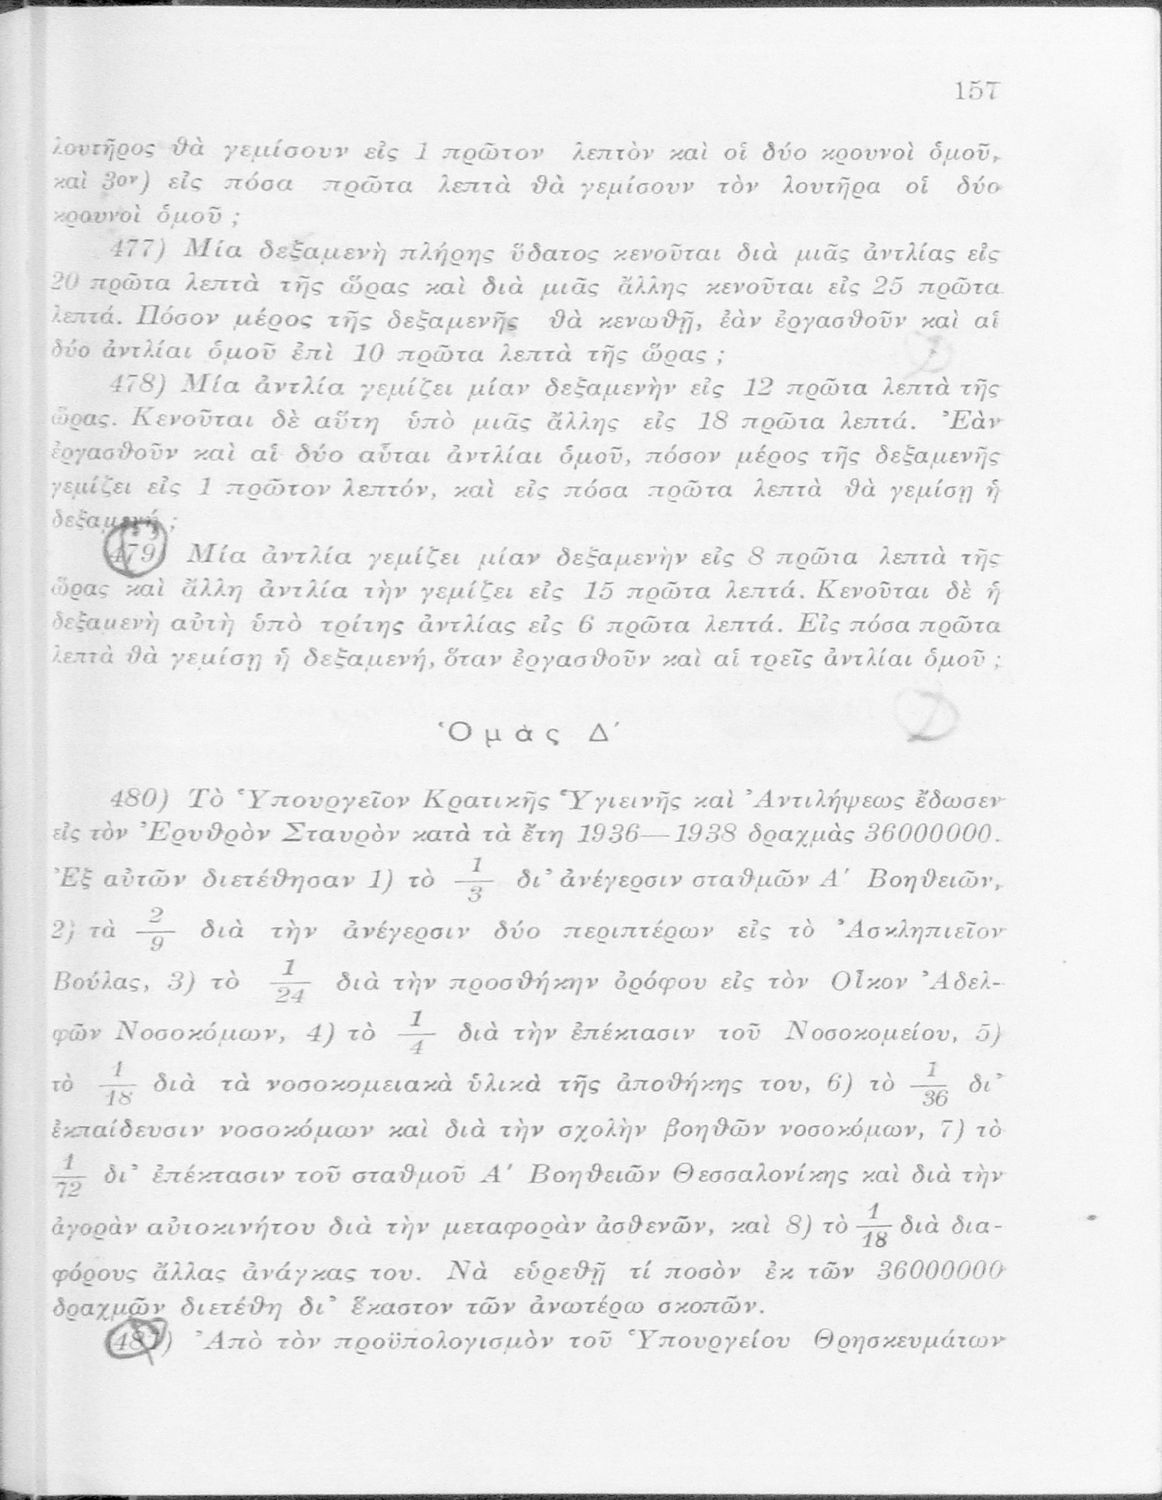 157
λουτῆρος θὰ γεμίσουν εἰς 1 πρῶτον λεπτὸν καὶ οἱ δύο κρουνοὶ ὁμοῦ,
καὶ 3ον) εἰς πόσα πρῶτα λεπτὰ θὰ γεμίσουν τὸν λουτῆρα οἱ δύο
κρουνοὶ ὁμοῦ ;
477) Μία δεξαμενὴ πλήρης ὕδατος κενοῦται διὰ μιᾶς ἀντλίας εἰς
20 πρῶτα λεπτὰ τῆς ὥρας καὶ διὰ μιᾶς ἄλλης κενοῦται εἰς 25 πρῶτα
λεπτά. Πόσον μέρος τῆς δεξαμενῆς θὰ κενωθῇ, ἐὰν ἐργασθοῦν καὶ αἱ
δύο ἀντλίαι ὁμοῦ ἐπὶ 10 πρῶτα λεπτὰ τῆς ὥρας ;
478) Μία ἀντλία γεμίζει μίαν δεξαμενὴν εἰς 12 πρῶτα λεπτὰ τῆς
ὥρας. Κενοῦται δὲ αὕτη ὑπὸ μιᾶς ἄλλης εἰς 18 πρῶτα λεπτά. Ἐὰν
ἐργασθοῦν καὶ αἱ δύο αὗται ἀντλίαι ὁμοῦ, πόσον μέρος τῆς δεξαμενῆς
γεμίζει εἰς 1 πρῶτον λεπτόν, καὶ εἰς πόσα πρῶτα λεπτὰ θὰ γεμίσῃ ἡ
δεξαμενή ;
479) Μία ἀντλία γεμίζει μίαν δεξαμενὴν εἰς 8 πρῶτα λεπτὰ τῆς
ὥρας καὶ ἄλλη ἀντλία τὴν γεμίζει εἰς 15 πρῶτα λεπτά. Κενοῦται δὲ ἡ
δεξαμενὴ αὐτὴ ὑπὸ τρίτης ἀντλίας εἰς 6 πρῶτα λεπτά. Εἰς πόσα πρῶτα
λεπτὰ θὰ γεμίσῃ ἡ δεξαμενή, ὅταν ἐργασθοῦν καὶ αἱ τρεῖς ἀντλίαι ὁμοῦ ;
Ὁμὰς Δ′
480) Τὸ Ὑπουργεῖον Κρατικῆς Ὑγιεινῆς καὶ Ἀντιλήψεως ἔδωσεν
εἰς τὸν Ἐρυθρὸν Σταυρὸν κατὰ τὰ ἔτη 1936—1938 δραχμὰς 36000000.
Ἐξ αὐτῶν διετέθησαν 1) τὸ 1/3 δι' ἀνέγερσιν σταθμῶν Α′ Βοηθειῶν,
2) τὰ 2/9 διὰ τὴν ἀνέγερσιν δύο περιπτέρων εἰς τὸ Ἀσκληπιεῖον
Βούλας, 3) τὸ 1/24 διὰ τὴν προσθήκην ὀρόφου εἰς τὸν Οἶκον Ἀδελ-
φῶν Νοσοκόμων, 4) τὸ 1/4 διὰ τὴν ἐπέκτασιν τοῦ Νοσοκομείου, 5)
τὸ 1/18 διὰ τὰ νοσοκομειακὰ ὑλικὰ τῆς ἀποθήκης του, 6) τὸ 1/36 δι'
ἐκπαίδευσιν νοσοκόμων καὶ διὰ τὴν σχολὴν βοηθῶν νοσοκόμων, 7) τὸ
1/72 δι' ἐπέκτασιν τοῦ σταθμοῦ Α′ Βοηθειῶν Θεσσαλονίκης καὶ διὰ τὴν
ἀγορὰν αὐτοκινήτου διὰ τὴν μεταφορὰν ἀσθενῶν, καὶ 8) τὸ 1/18 διὰ δια-
φόρους ἄλλας ἀνάγκας του. Νὰ εὑρεθῇ τί ποσὸν ἐκ τῶν 36000000
δραχμῶν διετέθη δι' ἕκαστον τῶν ἀνωτέρω σκοπῶν.
481) Ἀπὸ τὸν προϋπολογισμὸν τοῦ Ὑπουργείου Θρησκευμάτων